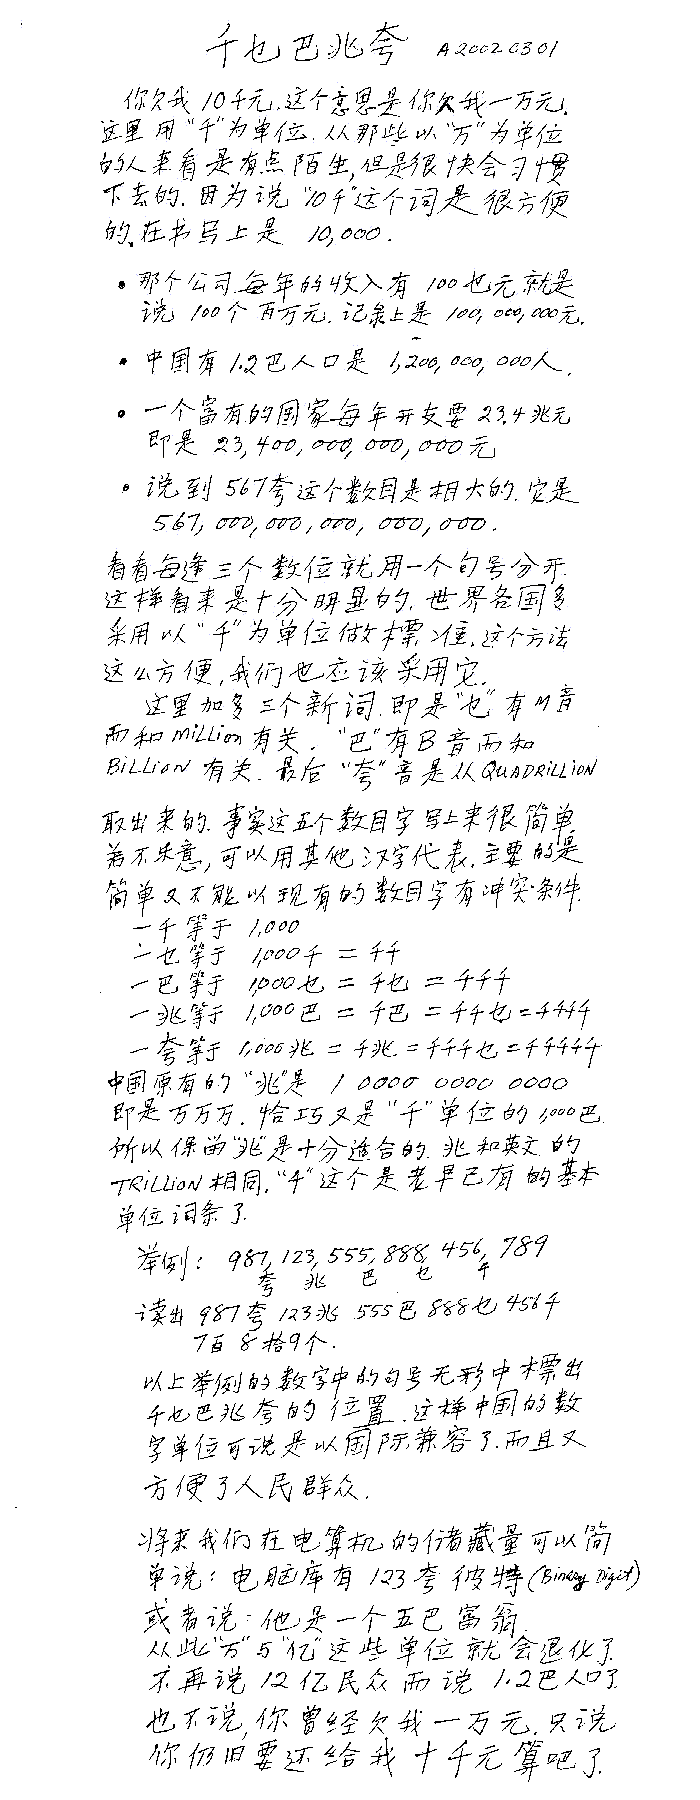 千乜巴兆夸 A20020301
你欠我10千元.这个意思是你欠我一万元.
这里用"千"为单位.从那些以"万"为单位
的人来看是有点陌生,但是很快会习惯
下去的.因为说"10千"这个词是很方便
的.在书写上是 10,000.
• 那个公司每年的收入有 100乜元就是
说 100个百万元.记录上是 100,000,000元.
• 中国有 1.2巴人口是 1,200,000,000人.
• 一个富有的国家每年开支要 23.4兆元
即是 23,400,000,000,000元
• 说到 567夸这个数目是相大的.它是
567,000,000,000,000,000.
看看每逢三个数位就用一个句号分开.
这样看来是十分明显的.世界各国多
采用以"千"为单位做标准.这个方法
这么方便,我们也应该采用它.
这里加多三个新词.即是"乜"有M音
而和MiLLion有关."巴"有B音而和
BiLLiON有关.最后"夸"音是从QUADRiLLiON
取出来的.事实这五个数目字写上来很简单.
若不乐意,可以用其他汉字代表.主要的是
简单又不能以现有的数目字有冲突条件.
一千等于 1,000
一乜等于 1,000千 = 千千
一巴等于 1,000乜 = 千乜 = 千千千
一兆等于 1,000巴 = 千巴 = 千千乜 = 千千千千
一夸等于 1,000兆 = 千兆 = 千千千乜 = 千千千千千
中国原有的"兆"是 1 0000 0000 0000
即是万万万.恰巧又是"千"单位的1,000巴
所以保留"兆"是十分适合的.兆和英文的
TRiLLiON相同."千"这个是老早已有的基本
单位词条了.
举例: 987,123,555,888,456,789
夸 兆 巴 乜 千
读出 987夸 123兆 555巴 888乜 456千
7百 8拾9个.
以上举例的数字中的句号无形中標出
千乜巴兆夸的位置.这样中国的数
字单位可说是以国际兼容了.而且又
方便了人民群众.
将来我们在电算机的储藏量可以简
单说:电脑库有 123夸彼特(Binary Digit)
或者说:他是一个五巴富翁.
从此"万"与"亿"这些单位就会退化了.
不再说 12亿民众而说 1.2巴人口了
也不说,你曾经欠我一万元.只说
你仍旧要还给我十千元算吧了.